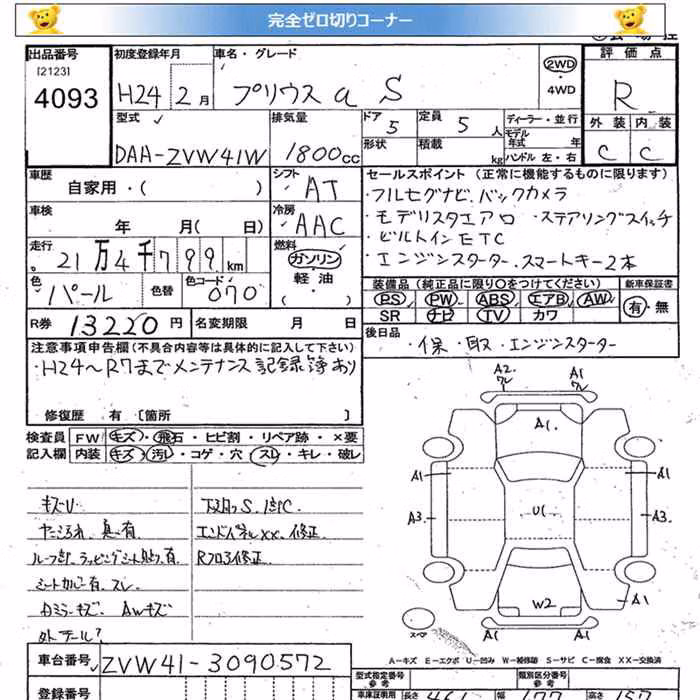 完全ゼロ切りコーナー
出品番号 初度登録年月 車名・グレード 評価点
[2123]
4093 H24 2月 プリウスα S 2WD ・ 4WD R
型式 排気量 ドア 5 定員 5 人 ディーラー・並行 外装 内装
DAA-ZVW41W 1800cc 形状 積載 kg モデル年式 年 ハンドル 左・右 C C
車歴 シフト セールスポイント (正常に機能するものに限ります)
自家用・( ) AT ・フルセグナビ.バックカメラ
車検 冷房 ・モデリスタエアロ ・ステアリングスイッチ
年 月( 日) AAC ・ビルトインETC
走行 燃料 ・エンジンスターター.スマートキー2本
21万4千799km ガソリン・軽油・( )
装備品 (純正品に限り○をつけてください) 新車保証書
色 パール 色替 色コード 070 PS PW ABS エアB AW 有・無
SR ナビ TV カワ
R券 13220円 名変期限 月 日 後日品
・保・取・エンジンスターター
注意事項申告欄 (不具合内容等は具体的に記入して下さい)
・H24〜R7までメンテナンス記録簿あり
修復歴 有 〔箇所 〕
検査員 FW キズ・飛石・ヒビ割・リペア跡・×要
記入欄 内装 キズ・汚レ・コゲ・穴・スレ・キレ・破レ
A2 A1
ワレ ワレ
A1.
A1 A1
A3 UC A3.
W2 A1
A1 A1
スペア
キズU
ルーフ
シートカバー有.スレ
Dミラーキズ. AWキズ
外テール?
エンドパネルXX.修正
Rフロア修正
A-キズ E-エクボ U-凹み W-補修跡 S-サビ C-腐食 XX-交換済
車台番号 ZVW41-3090572
登録番号
型式指定番号 参考 類別区分番号 参考
車庫証明用 長さ 幅 高さ